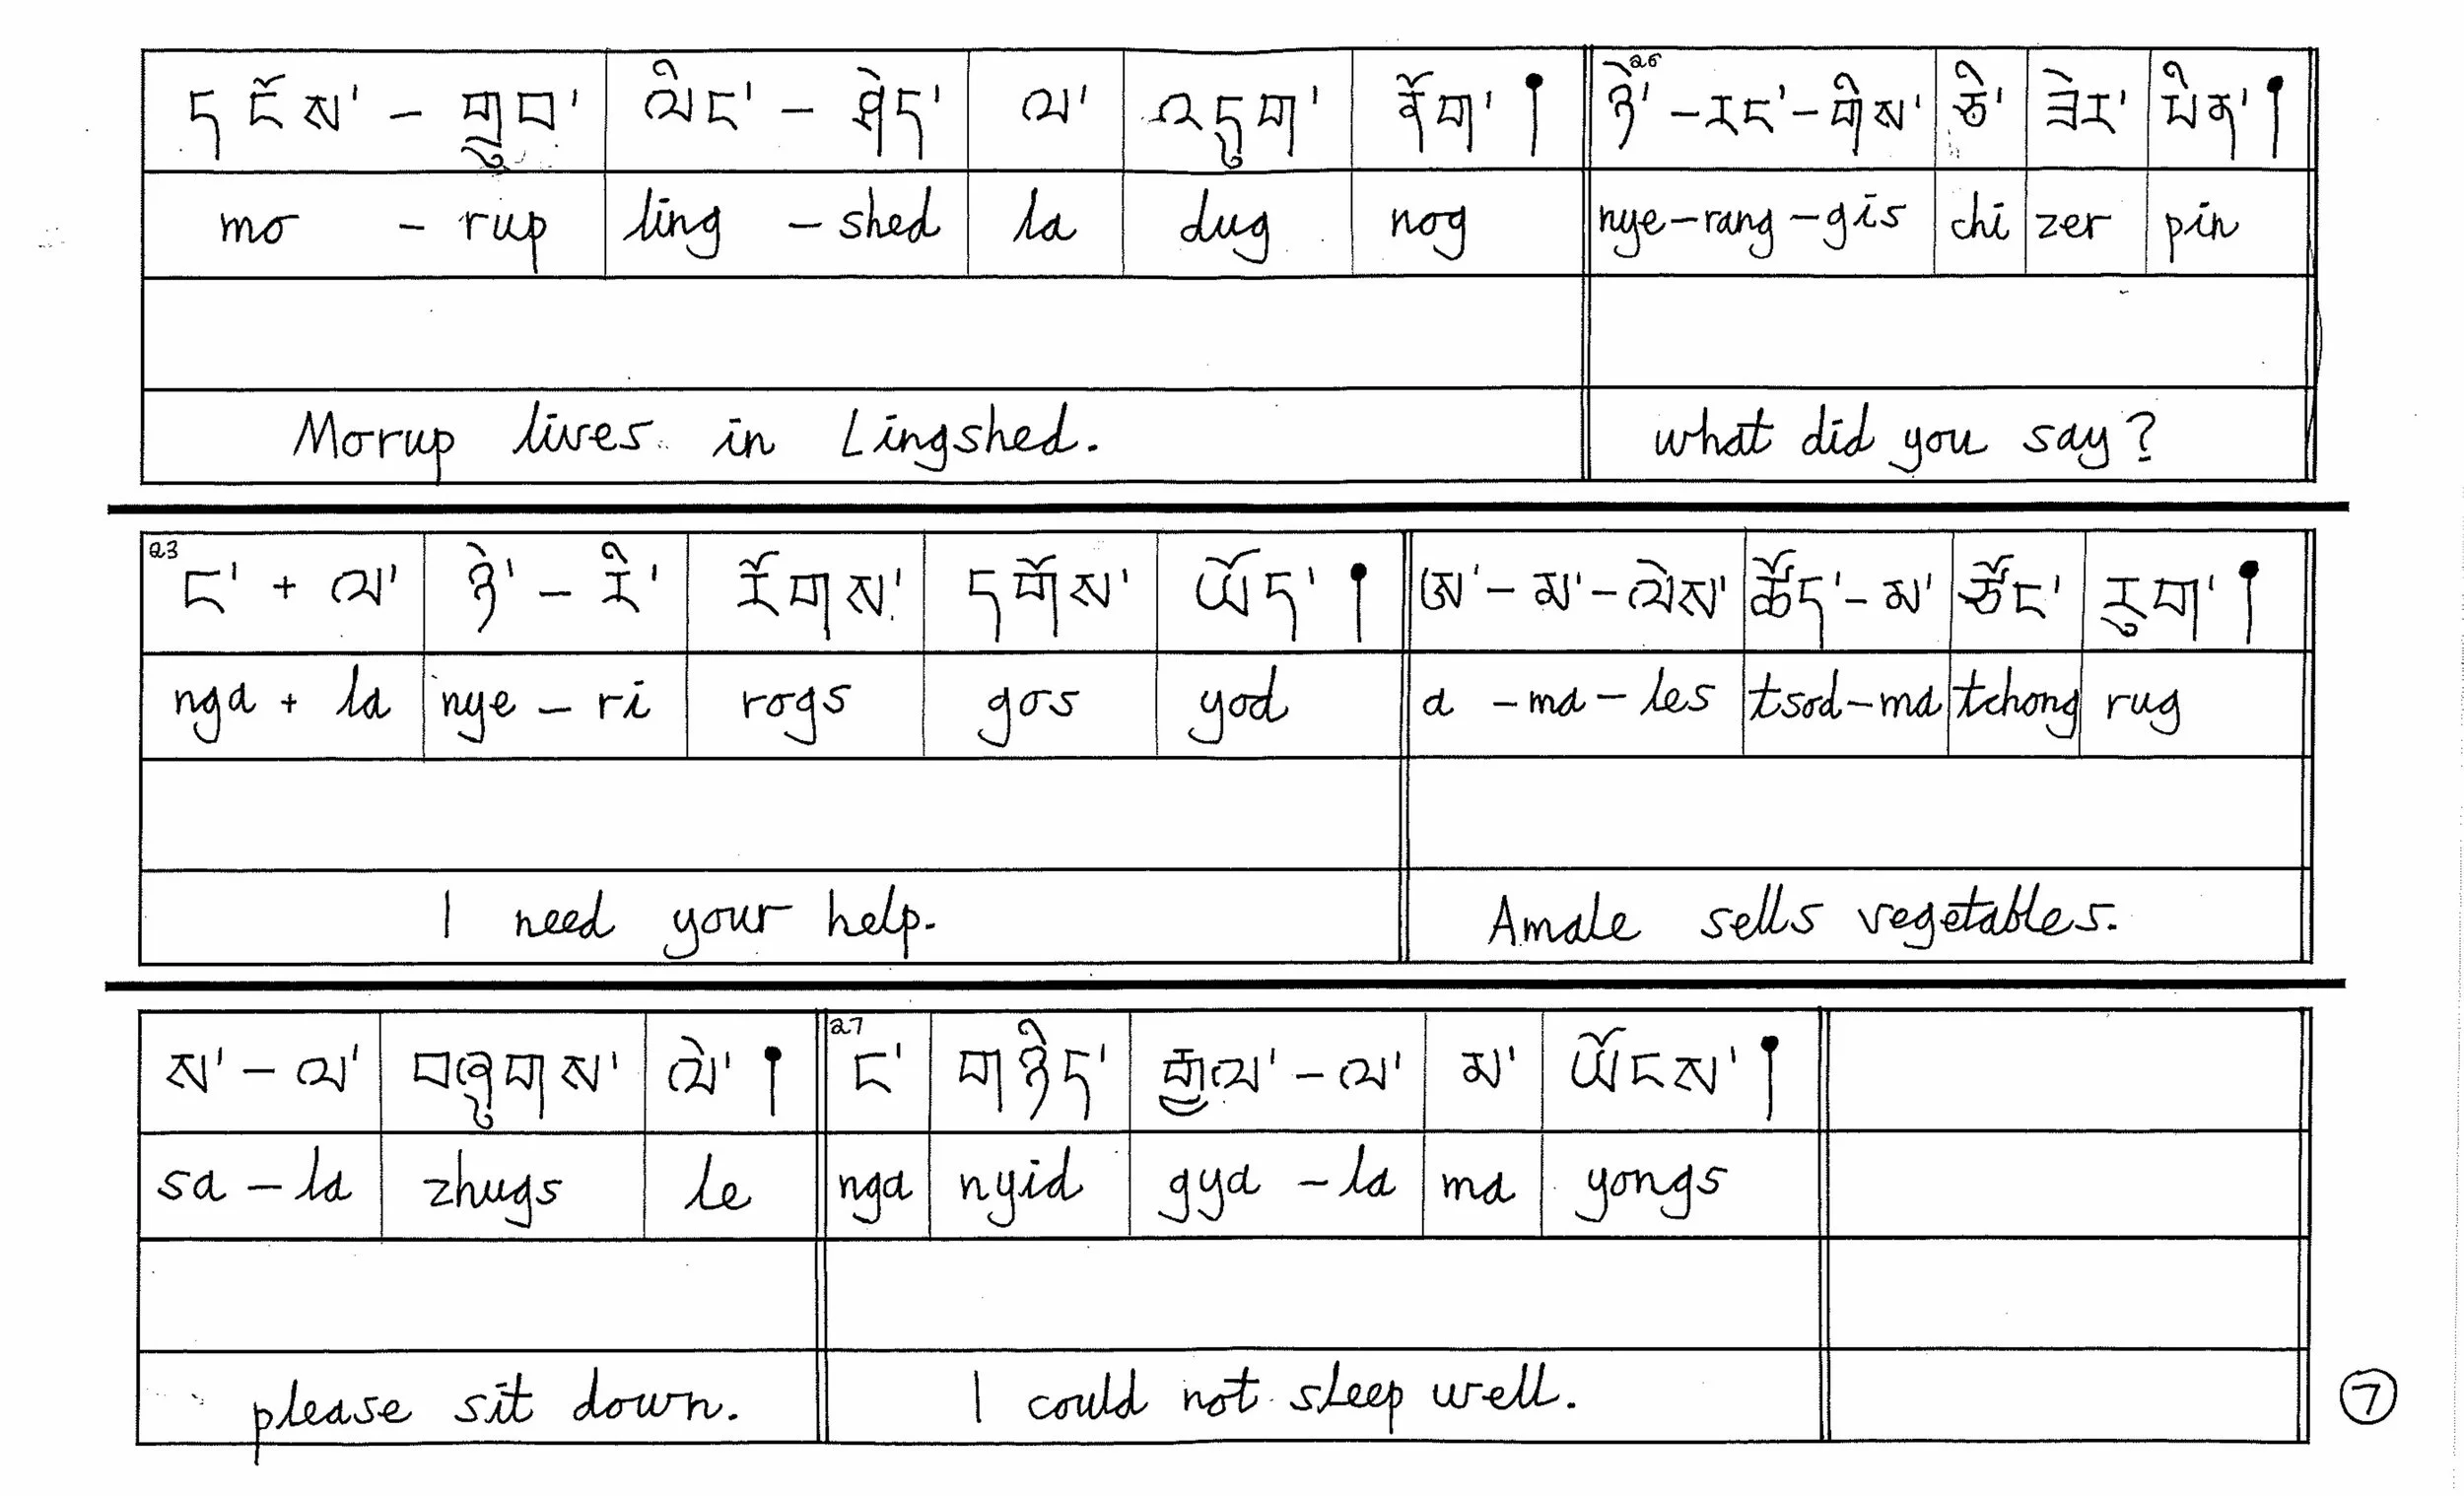 དངོས་ - གྲུབ་ ལིང་ - ཤེད་ ལ་ འདུག་ ནོག་ ། 26 ཉེ་ - རང་ - གིས་ ཅི་ ཟེར་ པིན་ །
mo - rup ling - shed la dug nog nye - rang - gis chi zer pin
Morup lives in Lingshed. what did you say?
23 ང་ + ལ་ ཉེ་ - རི་ རོགས་ དགོས་ ཡོད་ ། ཨ་ - མ་ - ལེས་ ཚོད་ - མ་ ཙོང་ རུག་ །
nga + la nye - ri rogs gos yod a - ma - les tsod - ma tchong rug
I need your help. Amale sells vegetables.
ས་ - ལ་ བཞུགས་ ལེ་ ། 27 ང་ གཉིད་ རྒྱལ་ - ལ་ མ་ ཡོངས་ །
sa - la zhugs le nga nyid gya - la ma yongs
please sit down. I could not sleep well.
7